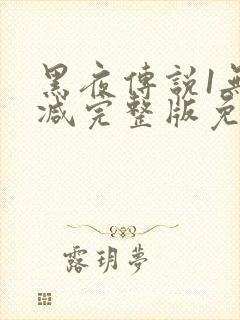 黑夜傳說1無
减完整版免
露玥夢